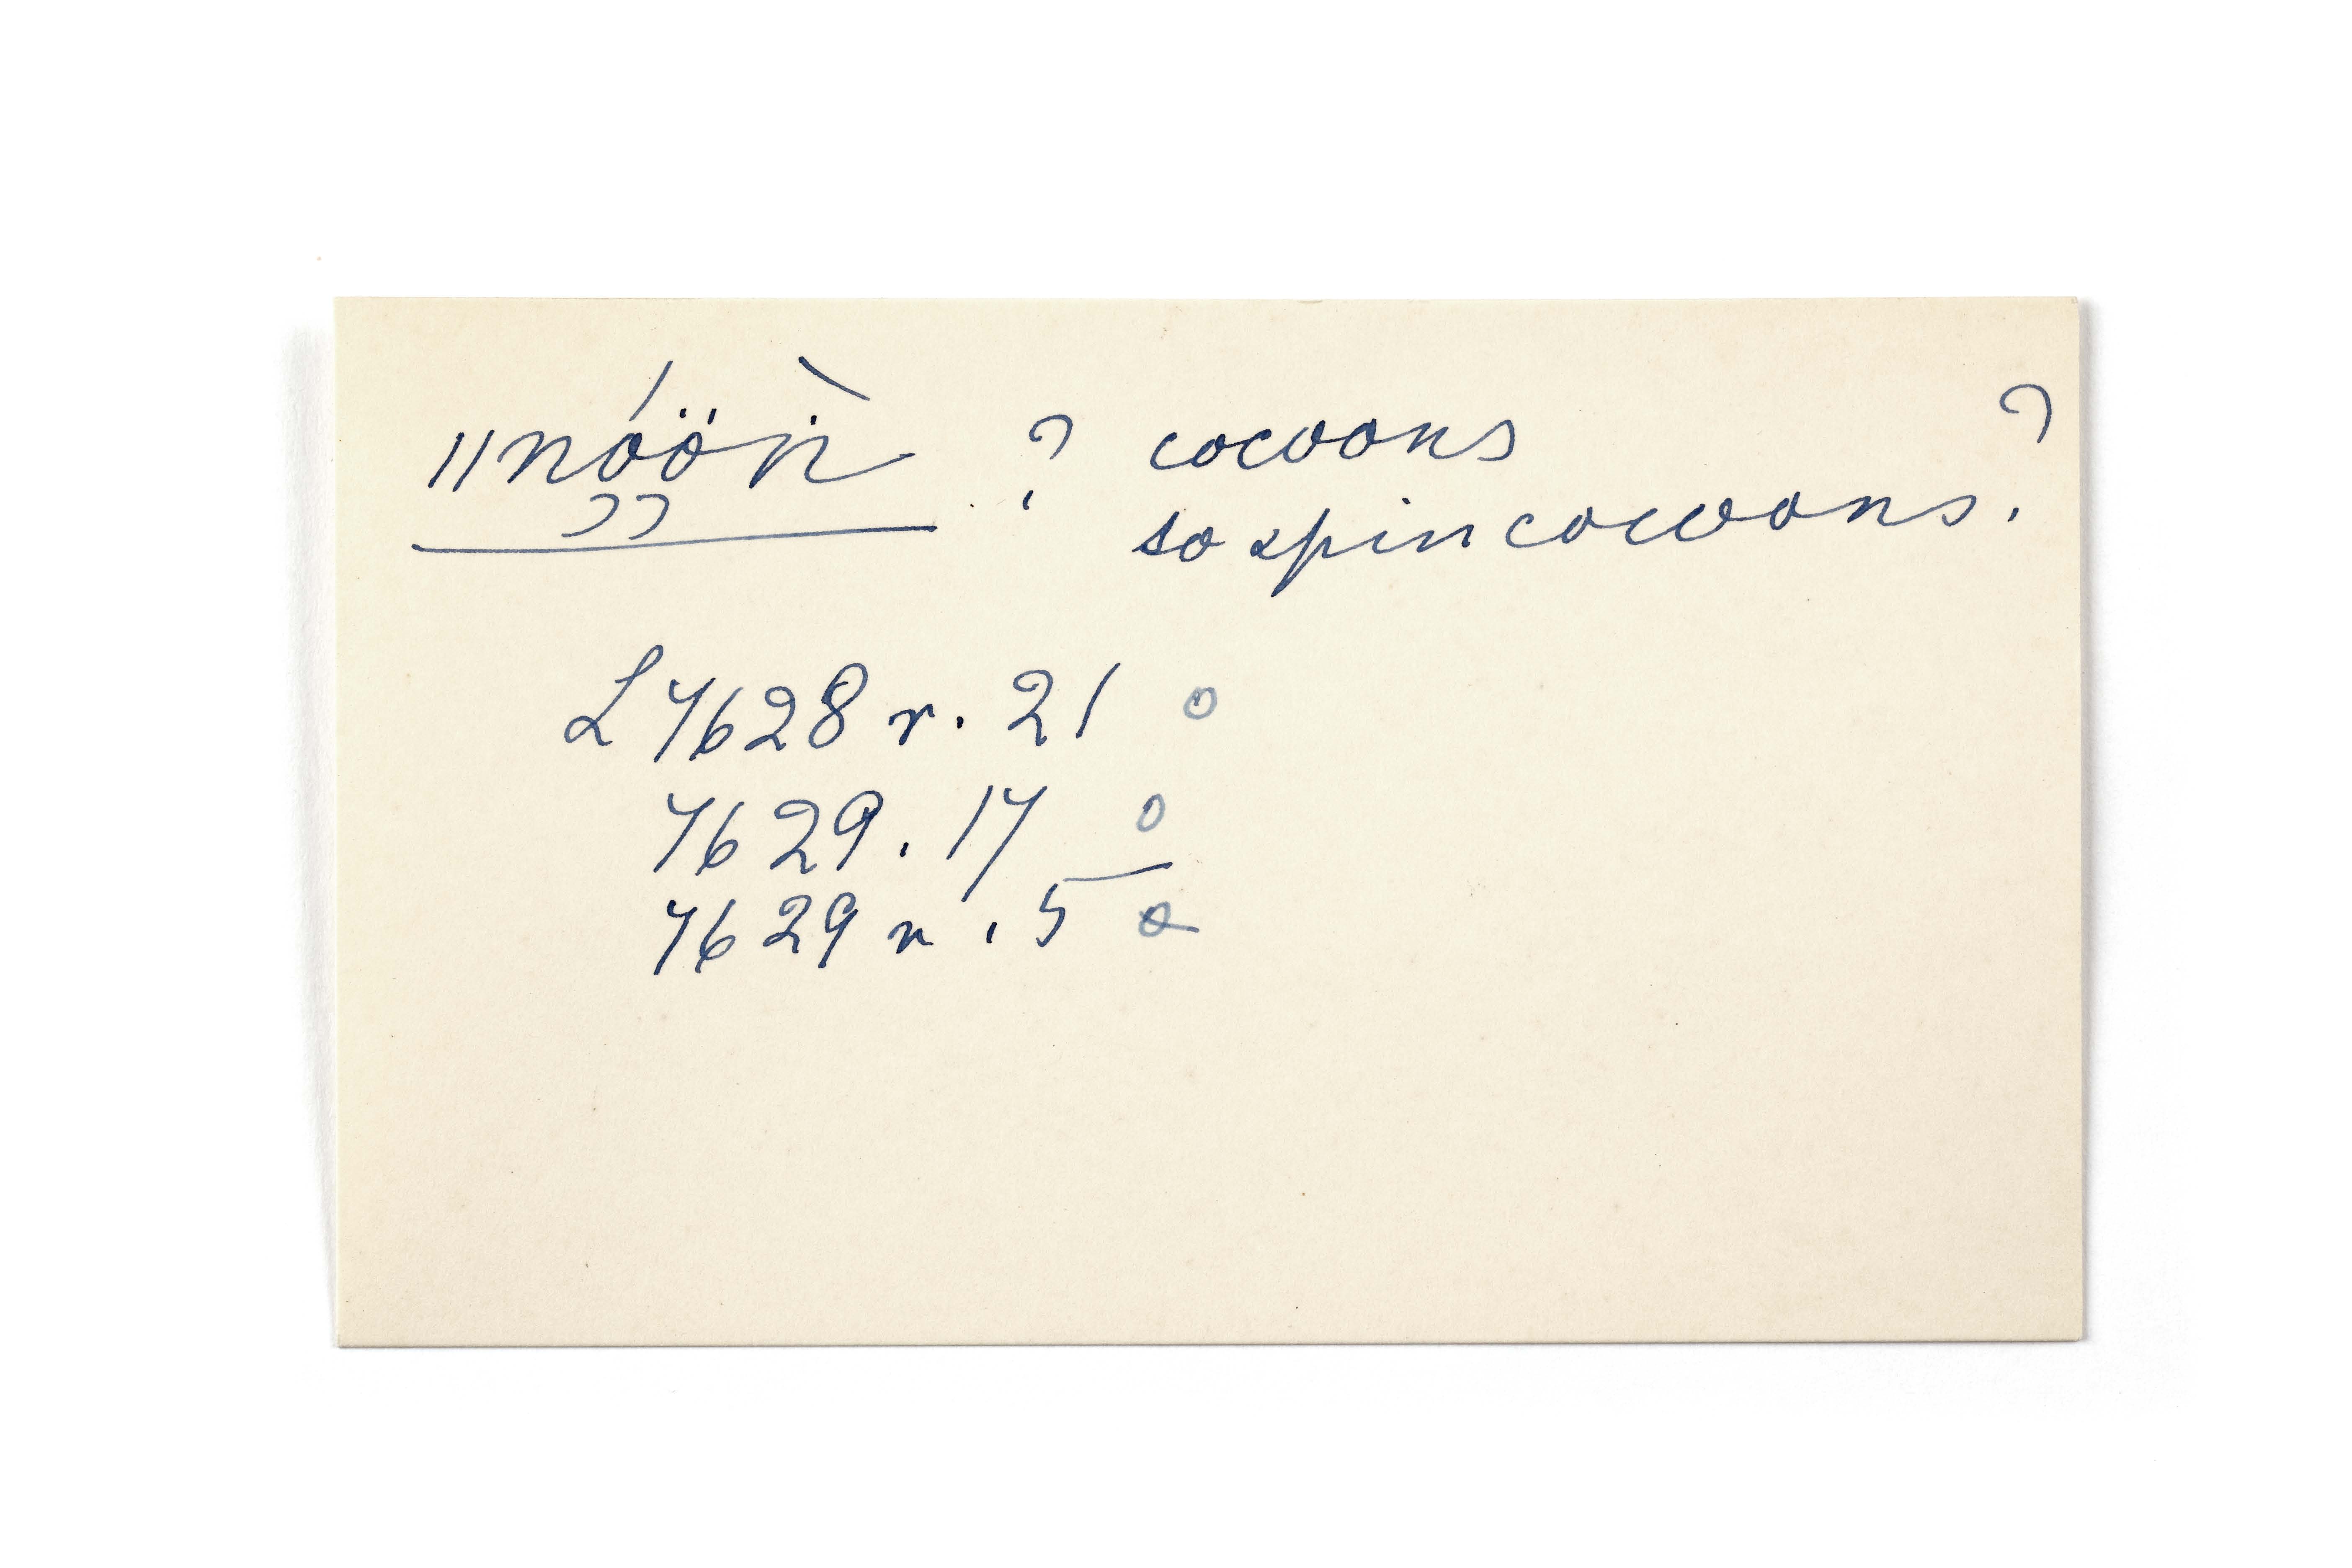 ǁnóö̤ǹ̈ ? cocoons
so spin cocoons. ?
L 7628 r. 21 o
7629. 17 o
7629 r. 5 o